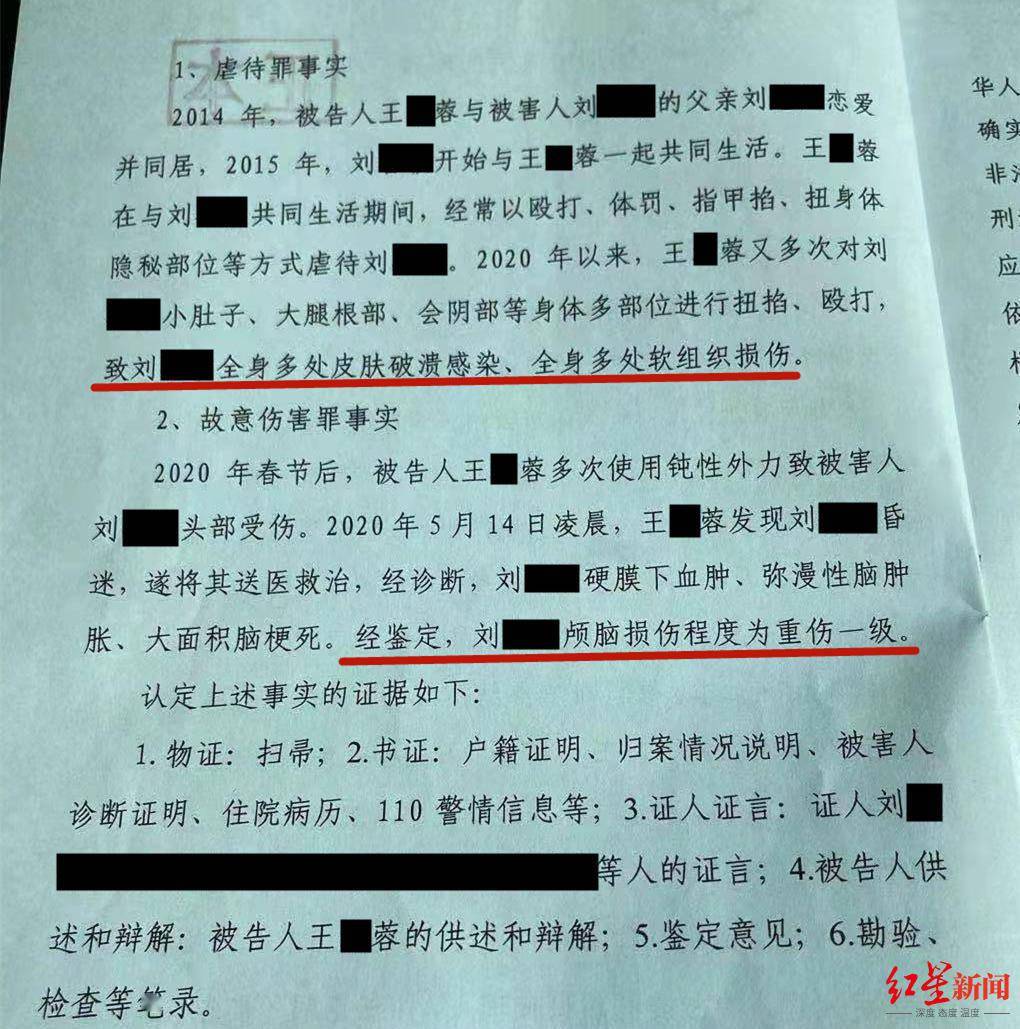 1、虐待罪事实
2014 年，被告人王蓉与被害人刘的父亲刘恋爱
并同居，2015 年，刘开始与王蓉一起共同生活。王蓉
在与刘共同生活期间，经常以殴打、体罚、指甲掐、扭身体
隐秘部位等方式虐待刘。2020 年以来，王蓉又多次对刘
小肚子、大腿根部、会阴部等身体多部位进行扭掐、殴打，
致刘全身多处皮肤破溃感染、全身多处软组织损伤。
2、故意伤害罪事实
2020 年春节后，被告人王蓉多次使用钝性外力致被害人
刘头部受伤。2020 年 5 月 14 日凌晨，王蓉发现刘昏
迷，遂将其送医救治，经诊断，刘硬膜下血肿、弥漫性脑肿
胀、大面积脑梗死。经鉴定，刘颅脑损伤程度为重伤一级。
认定上述事实的证据如下：
1.物证：扫帚；2.书证：户籍证明、归案情况说明、被害人
诊断证明、住院病历、110 警情信息等；3.证人证言：证人刘
等人的证言；4.被告人供
述和辩解：被告人王蓉的供述和辩解；5.鉴定意见；6.勘验、
检查等笔录。
华人
确实
非法
刑
应
依
红星新闻
深度 态度 温度